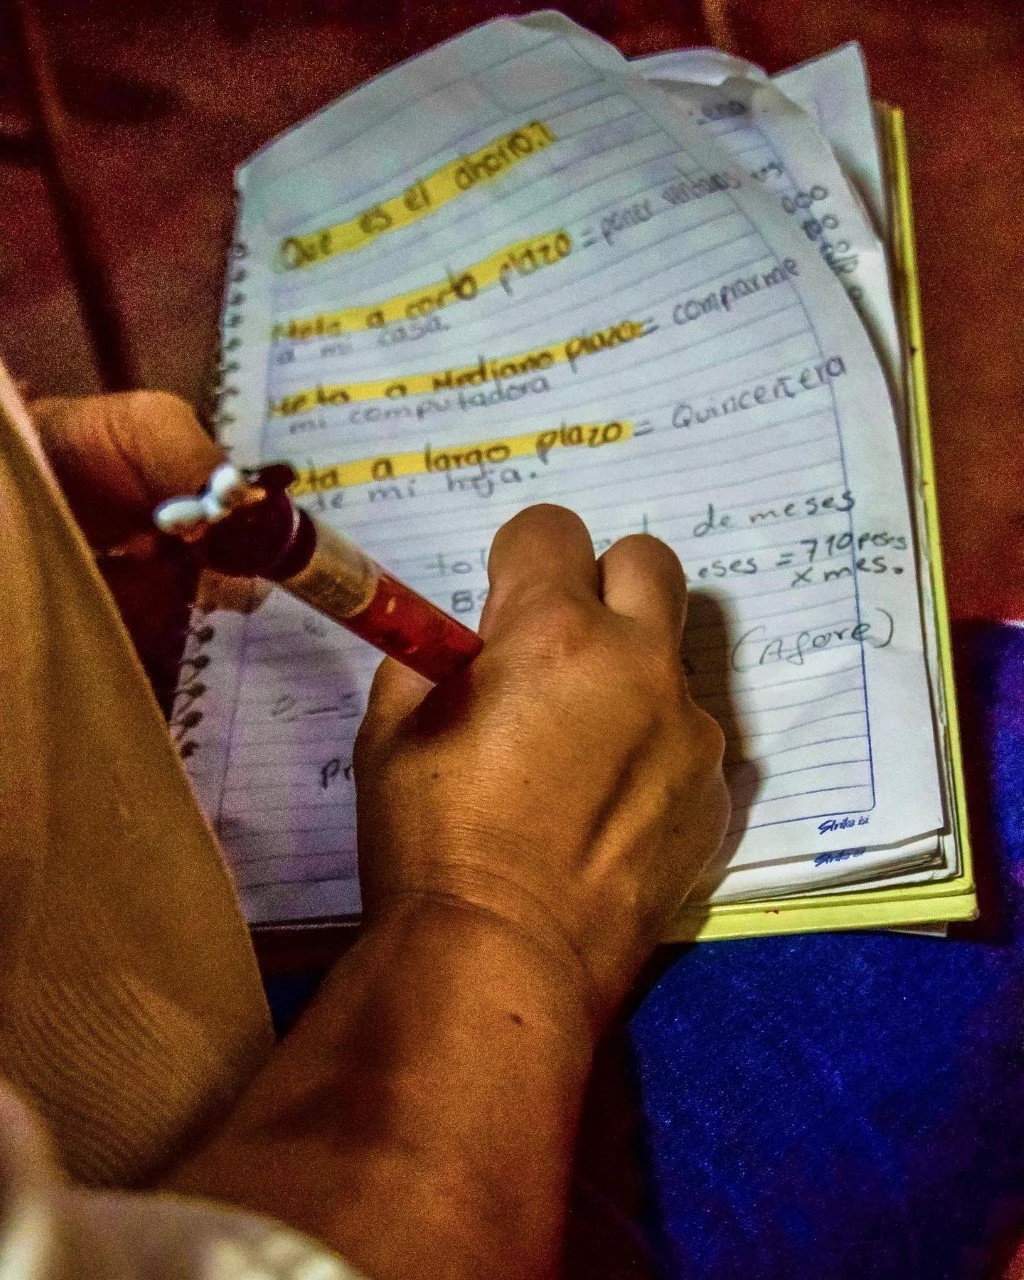 Que es el ahorro.?
Meta a corto plazo = poner vitrinas
a mi casa.
Meta a Mediano plazo = comprarme
mi computadora
Meta a largo plazo = Quinceñera
de mi hija.
de meses
eses = 710 pesos
x mes.
(Afore)
Pr
Strika
Strika